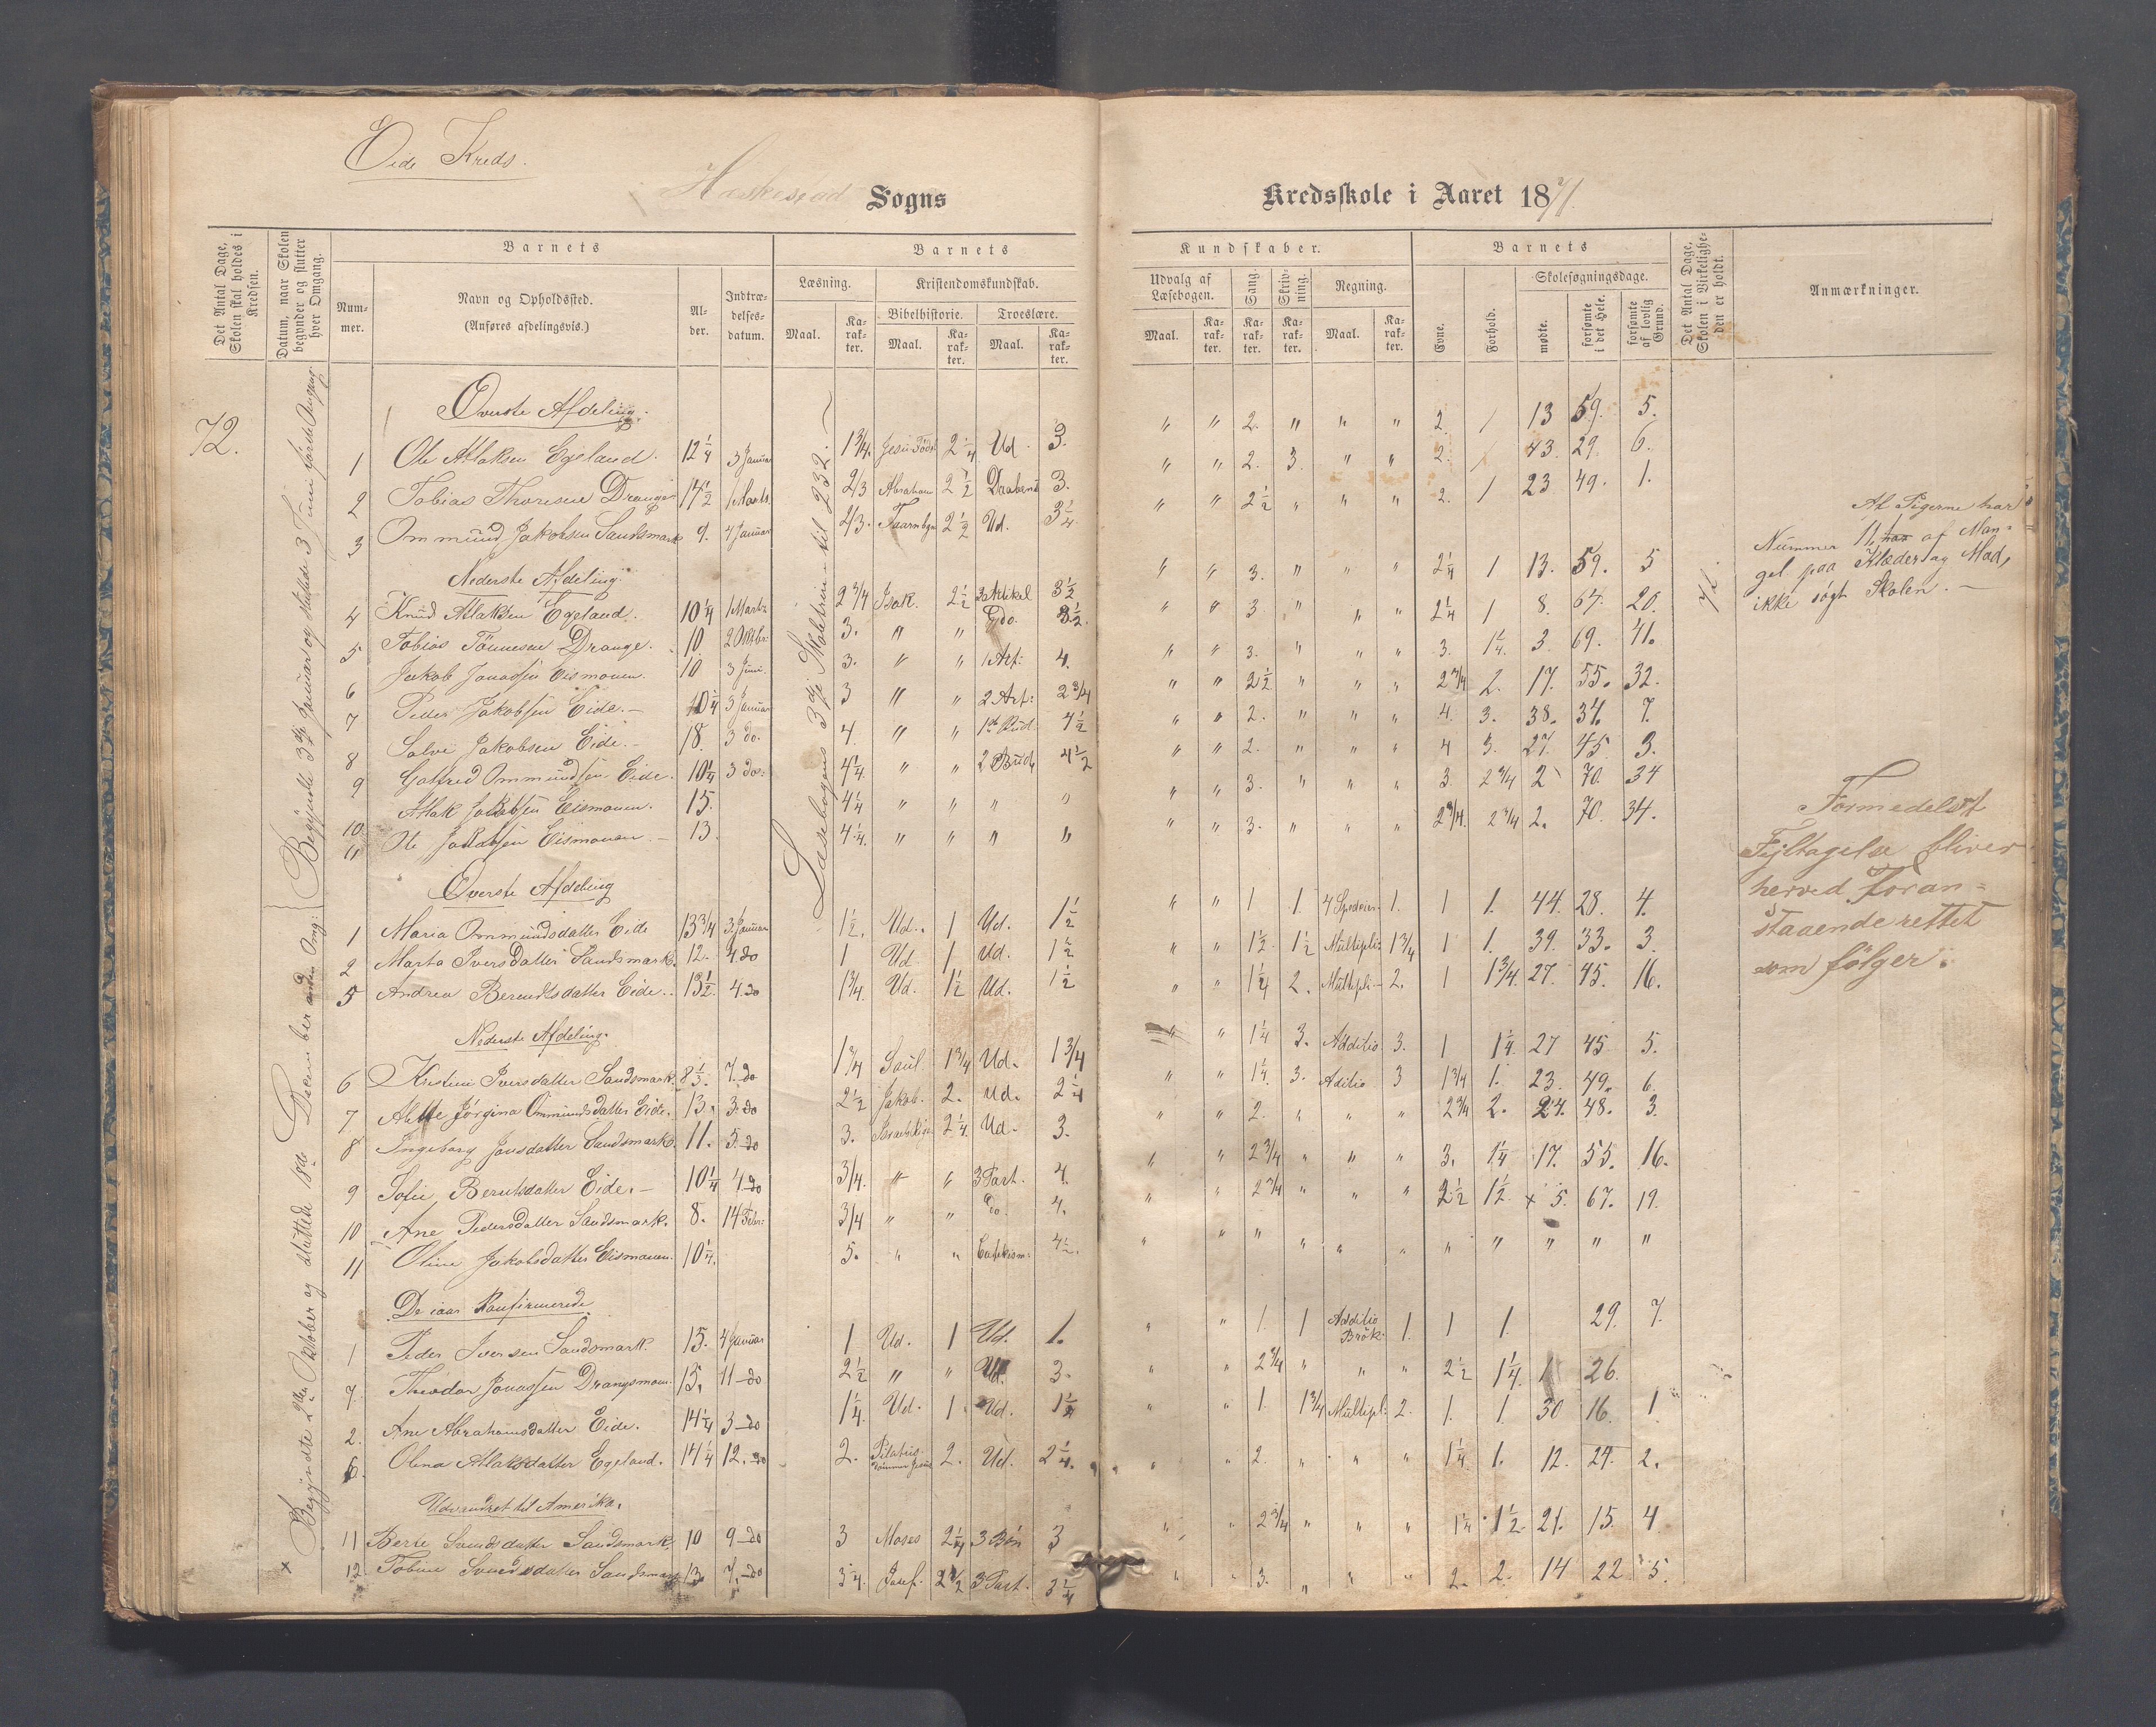 Eide Kreds.
Sogns
Kredsskole i Aaret 1871.
Det Antal Dage, Skolen skal holdes i Kredsen.
Datum, naar Skolen begynder og slutter hver Omgang.
Barnets
Nummer.
Navn og Opholdssted.
(Anføres afdelingsvis.)
Alder.
Indtrædelsesdatum.
Barnets
Læsning.
Maal.
Karakter.
Kristendomskundskab.
Bibelhistorie.
Maal.
Karakter.
Troeslære.
Maal.
Karakter.
Kundskaber.
Udvalg af Læsebogen.
Maal.
Karakter.
Sang.
Karakter.
Skrivning.
Karakter.
Regning.
Maal.
Karakter.
Barnets
Evne.
Forhold.
Skolesøgningsdage.
mødte.
forsømte i det Hele.
forsømte af lovlig Grund.
Det Antal Dage, Skolen i Virkeligheden er holdt.
Anmærkninger.
72.
Øverste Afdeling.
" " 2. " " " 2. 1 13 59. 5.
1 Ole Atlaksen Egeland. 12 1/4 3 Januar 1 3/4. JesuFøds. 2 1/4 Ud. 3.
" " 2. 3. " " 2. 1 43. 29. 6.
2 Tobias Thoresen Drange 14 1/2 1 Marts 2/3 Abraham 2 1/2 3.
" " 2 1/2 " " " 2. 1 23 49. 1.
3 Ommund Jakobsen Sandsmark 9. 4 Januar 2/3. 2 1/2 Ud. 3 1/4
Nederste Afdeling.
" " 3. " " " 2 1/4 1 13. 59. 5
4 Knud Atlaksen Egeland. 10 1/4 1 Marts 2 3/4 Isak. 2 1/2 3 Artikel 3 1/2
" " 3 " " " 2 1/4 1 8. 64. 20.
5 Tobias Tönnesen Drange. 10. 2 Oktbr: 3. " " do. 3 1/2.
" " 3. " " " 3. 1 1/4. 3. 69. 41.
6 Jakob Jonassen Eismouen. 10 3 Juni. 3. " " 1 Art: 4.
" " 2 1/2 " " " 2 3/4 2. 17. 55. 32.
7 Peder Jakobsen Eide. 10 1/4 3 Januar 3 " " 2 Art: 2 3/4
" " 2. " " " 4. 3. 38. 34. 7.
8 Salve Jakobsen Eide. 18. 3 do. 4. " " 1ste Bud. 4 1/2
" " 2. " " " 4 3. 27. 45 3.
9 Gotfred Ommundsen Eide. 10 1/4 3 do: 4 1/4. " " 2 Bud. 4 1/2
" " 3. " " " 3 2 3/4 2 70. 34
10 Atlak Jakobsen Eismouen. 15. 4 1/4 " " " "
" " 3. " " " 2 3/4. 2 3/4 2. 70. 34.
11 Ole Jakobsen Eismouen. 13. 4 1/4. " " " "
Læsebogens 3die Skoletrin til 232.
71.
At Pigerne har
Nummer 11, har af Man-
gel paa Klæder og Mad,
ikke søgt Skolen.
Formedelst
Fejltagelse bliver
herved Foran-
staaende rettet
som følger:
Øverste Afdeling
1 Maria Ommundsdatter Eide 13 3/4 3. Januar 1 1/2. Ud. 1 Ud. 1 1/2
" " 1 1. 4 Species. 1. 1 1. 44. 28. 4.
2 Marta Iversdatter Sandsmark. 12. 4. do 1 Ud. 1 Ud. 1 1/2
" " 1 1/2. 1 1/2 Multipli: 1 3/4 1 1. 39. 33. 3.
5 Andrea Berentsdatter Eide. 13 1/2. 4. do 1 3/4. Ud. 1 1/2 Ud. 1 1/2
" " 1 1/4 2. Multipli: 2. 1 1 3/4. 27. 45. 16.
Nederste Afdeling.
6 Kristine Iversdatter Sandsmark. 8 1/3. 7. do 1 3/4 Saul. 1 3/4 Ud. 1 3/4
" " 1 1/4 3. Additio 3. 1 1 1/4. 27 45 5.
7 Jørgina Ommundsdatter Eide. 13. 3. do 2 1/2 Jakob. 2. Ud. 2 1/4
" " 1 1/4. 3. Aditio 3 1 3/4 1. 23. 49. 6.
8 Ingeborg Jonsdatter Sandsmark. 11. 5. do 3. 2 1/4 Ud. 3.
" " 2. " " " 2 3/4 2. 24. 48. 3.
9 Sofie Berntsdatter Eide. 10 1/4 4. do 3/4. " " 3 Part. 4.
" " 2 3/4 " " " 3. 1 1/4 17. 55. 16.
10 Ane Pedersdatter Sandsmark. 8. 14 Febr: 3/4 " " do. 4.
" " 2 3/4 " " " 2 1/2 1 1/2 x 5. 67. 19.
11 Oline Jakobsdatter Eismouen. 10 1/4. 5. " " Catekism: 4 1/2.
" " " " " " " " " " "
De iaar Konfirmerede
1 Peder Iversen Sandsmark. 15. 4 Januar 1 Ud. 1 Ud. 1.
" " 1. 1 Additio Brök. 1. 1 1. 29. 7.
7. Theodor Jonassen Drangsmouen. 15. 11 do 2 1/2 " " Ud. 3.
" " 2 3/4 " " " 2 1/2 1 1/4. 1 26.
2. Ane Abrahamsdatter Eide. 14 1/4 3 do 1 1/4. Ud. 1 Ud. 1 1/2
" " 1. 1 3/4 Multipl: 2. 1. 1. 30 16. 1
6. Olena Atlaksdatter Egeland. 14 1/4 12. do 2. Pilatus dömmer Jesus 2. Ud. 2 1/4.
" " 2. " " " 1 1/4. 1. 12. 24. 2.
Udvandret til Amerika.
11 Berte Sandsmark. 10 9 do 3 Moses 2 1/4 3 Bön 3
" " 2 3/4 " " " 1 1/4 1 1/2. 21. 15. 4
12 Tobine Sandsmark 13. 7. do 3 1/4. Josef. 2 1/2 3 Part. 3 1/4
" " 3. " " " 2. 2. 14 22. 5.
x Begyndte 2den Oktober og sluttede 18de December anden Omg: Begyndte 3die Januar og sluttede 3 Juni første Omgang